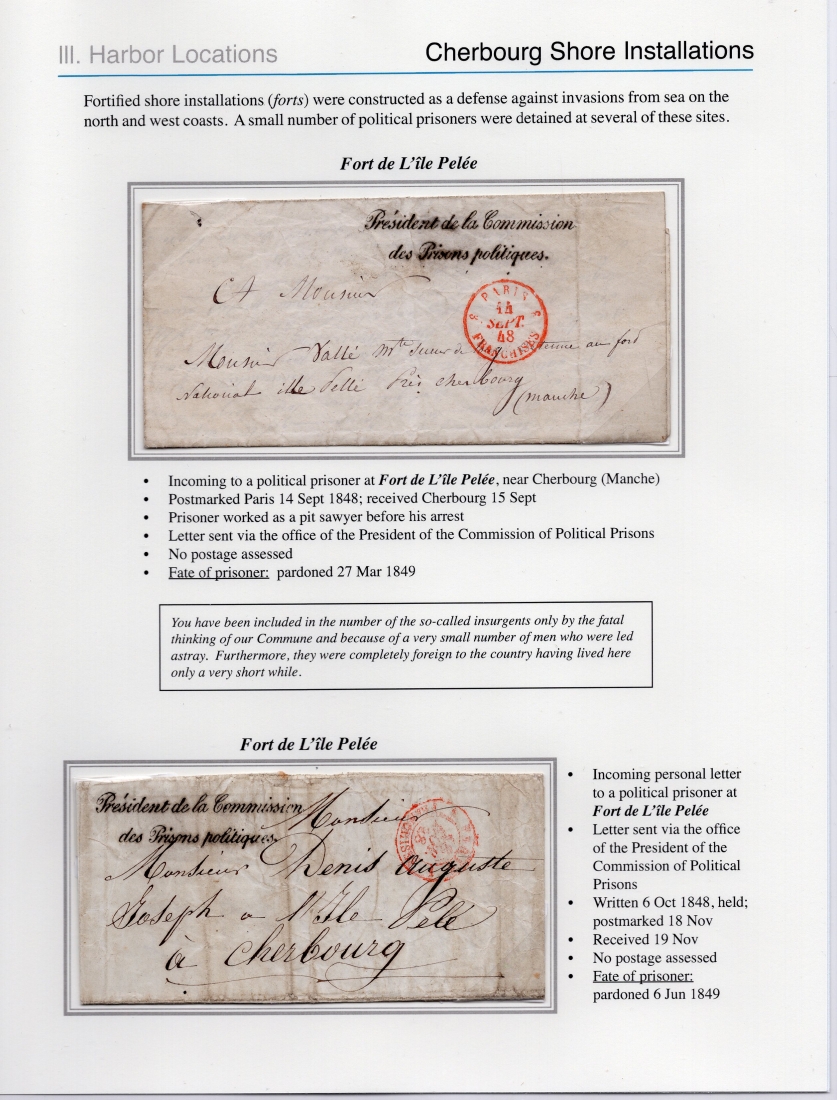 III. Harbor Locations
Cherbourg Shore Installations
Fortified shore installations (forts) were constructed as a defense against invasions from sea on the
north and west coasts. A small number of political prisoners were detained at several of these sites.
Fort de L'île Pelée
Président de la Commission
des Prisons politiques.
A Monsieur
PARIS
14
SEPT.
48
FRANCHISES
Monsieur Vallé au ford
National ille Pellé Près cherbourg
(manche)
• Incoming to a political prisoner at Fort de L'île Pelée, near Cherbourg (Manche)
• Postmarked Paris 14 Sept 1848; received Cherbourg 15 Sept
• Prisoner worked as a pit sawyer before his arrest
• Letter sent via the office of the President of the Commission of Political Prisons
• No postage assessed
• Fate of prisoner: pardoned 27 Mar 1849
You have been included in the number of the so-called insurgents only by the fatal
thinking of our Commune and because of a very small number of men who were led
astray. Furthermore, they were completely foreign to the country having lived here
only a very short while.
Fort de L'île Pelée
Président de la Commission
des Prisons politiques.
Monsieur
Monsieur Denis auguste
Joseph a l'Ile Pelé
à cherbourg
• Incoming personal letter
to a political prisoner at
Fort de L'île Pelée
• Letter sent via the office
of the President of the
Commission of Political
Prisons
• Written 6 Oct 1848, held;
postmarked 18 Nov
• Received 19 Nov
• No postage assessed
• Fate of prisoner:
pardoned 6 Jun 1849